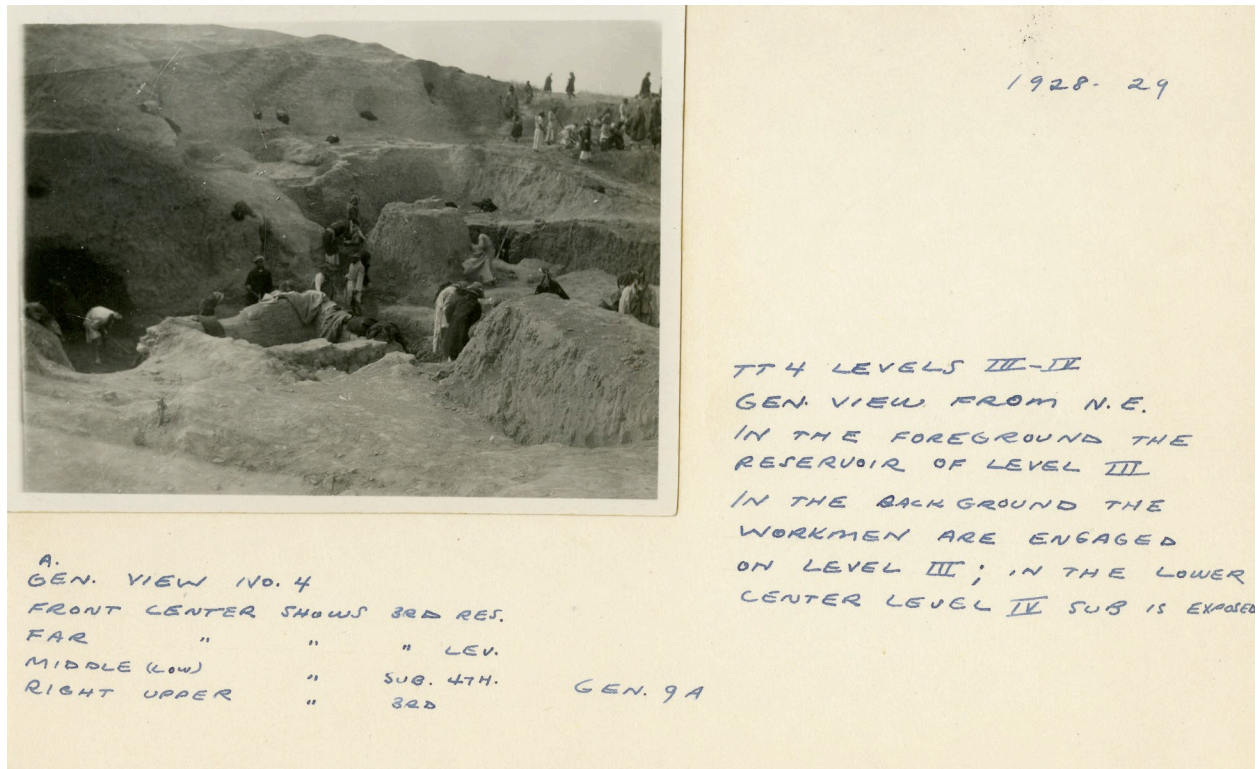 1928-29
TT4 LEVELS III-IV
GEN. VIEW FROM N.E.
IN THE FOREGROUND THE
RESERVOIR OF LEVEL III
IN THE BACKGROUND THE
WORKMEN ARE ENGAGED
ON LEVEL III; IN THE LOWER
CENTER LEVEL IV SUB IS EXPOSED
A.
GEN. VIEW NO. 4
FRONT CENTER SHOWS 3RD RES.
FAR " " " LEV.
MIDDLE (LOW) " SUB. 4TH.
RIGHT UPPER " 3RD
GEN. 9A